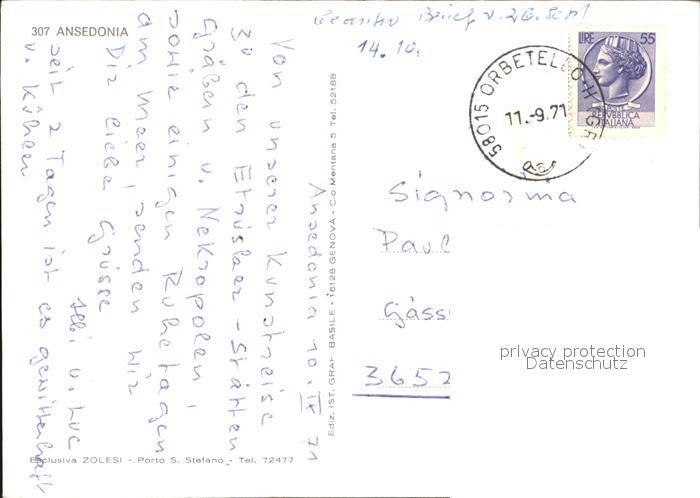 307 ANSEDONIA
Brief v. 26. Sept
14.10.
LIRE 55
REPVBBLICA
ITALIANA
58015 ORBETELLO
11.-9.71
Ansedonia 10. IX 71
Von unserer Kunstreise
zu den Etrusker-Stätten
Gräbern u. Nekropolen,
sowie einigen Ruhetagen
am Meer, senden wir
Dir liebe Grüsse
Albi u. Luc
seit 2 Tagen ist es gewitterhaft
u. kühler
Ediz. IST. GRAF. BASILE - 16128 GENOVA - C.o Mentana 5 Tel. 52188
Signorina
Paul
Gäss
3652
privacy protection
Datenschutz
Esclusiva ZOLESI - Porto S. Stefano - Tel. 72477